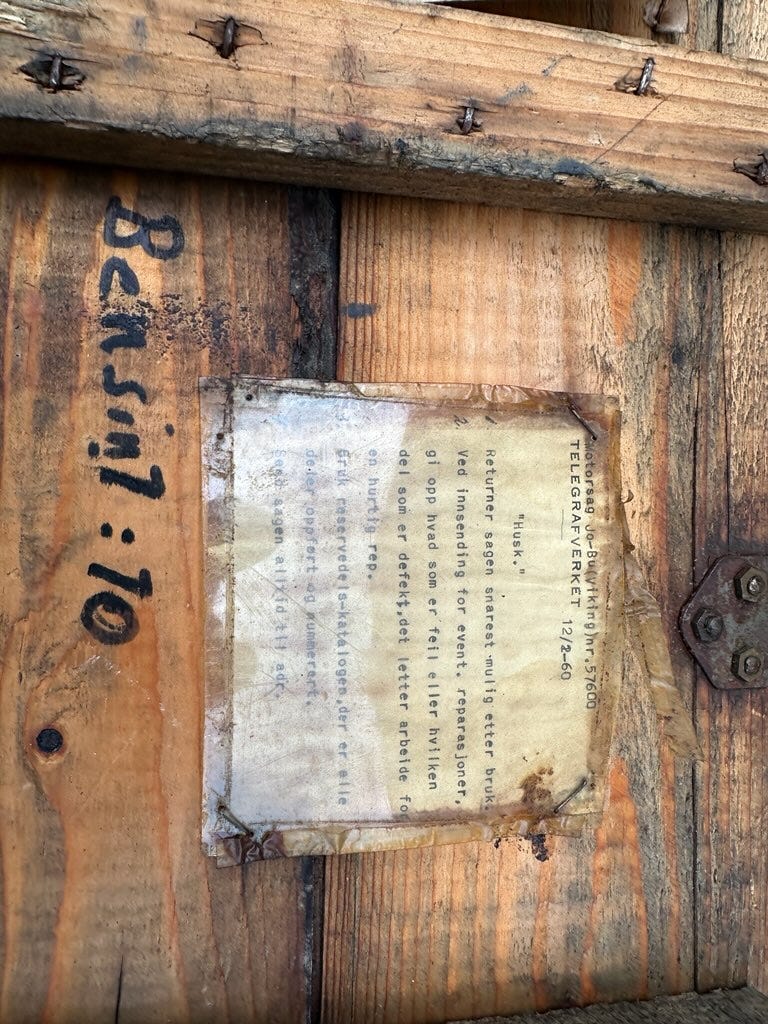 Motorsag Jo-Bu(viking)nr.57600
TELEGRAFVERKET 12/2-60
"Husk."
1 Returner sagen snarest mulig etter bruk.
2. Ved innsending for event. reparasjoner,
gi opp hvad som er feil eller hvilken
del som er defekt,det letter arbeide fo
en hurtig rep.
3. Bruk reservedels-katalogen,der er alle
deler oppført og nummerert.
Send sagen alltid til adr.
Bensin 1:10